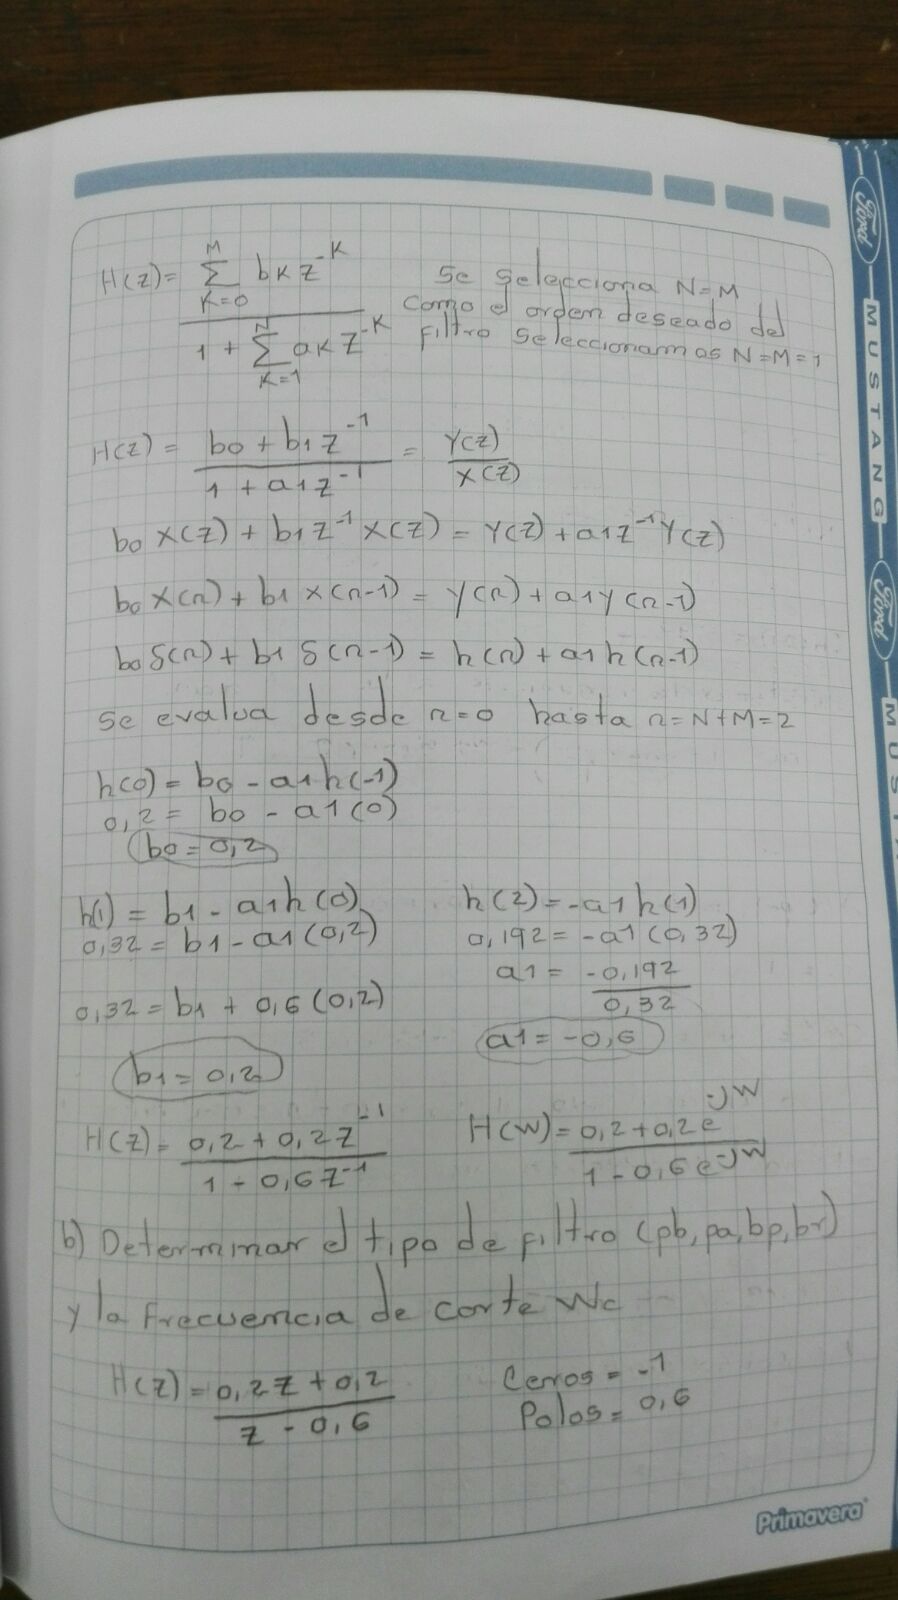 H(z) = M∑K=0 bK z^-K / 1 + N∑K=1 aK z^-K
Se selecciona N=M
como el orden deseado del
filtro seleccionamos N=M=1
H(z) = b0 + b1 z^-1 / 1 + a1 z^-1 = Y(z) / X(z)
b0 X(z) + b1 z^-1 X(z) = Y(z) + a1 z^-1 Y(z)
b0 X(n) + b1 x(n-1) = y(n) + a1 y(n-1)
b0 δ(n) + b1 δ(n-1) = h(n) + a1 h(n-1)
Se evalua desde n=0 hasta n=N+M=2
h(0) = b0 - a1 h(-1)
0,2 = b0 - a1(0)
b0 = 0,2
h(1) = b1 - a1 h(0)
0,32 = b1 - a1(0,2)
0,32 = b1 + 0,6 (0,2)
b1 = 0,2
h(2) = -a1 h(1)
0,192 = -a1 (0,32)
a1 = -0,192 / 0,32
a1 = -0,6
H(z) = 0,2 + 0,2 z^-1 / 1 - 0,6 z^-1
H(w) = 0,2 + 0,2 e^-jw / 1 - 0,6 e^-jw
b) Determinar el tipo de filtro (pb, pa, bp, br)
y la frecuencia de corte Wc
H(z) = 0,2z + 0,2 / z - 0,6
Ceros = -1
Polos = 0,6
Primavera
Ford
MUSTANG
Ford
MUS